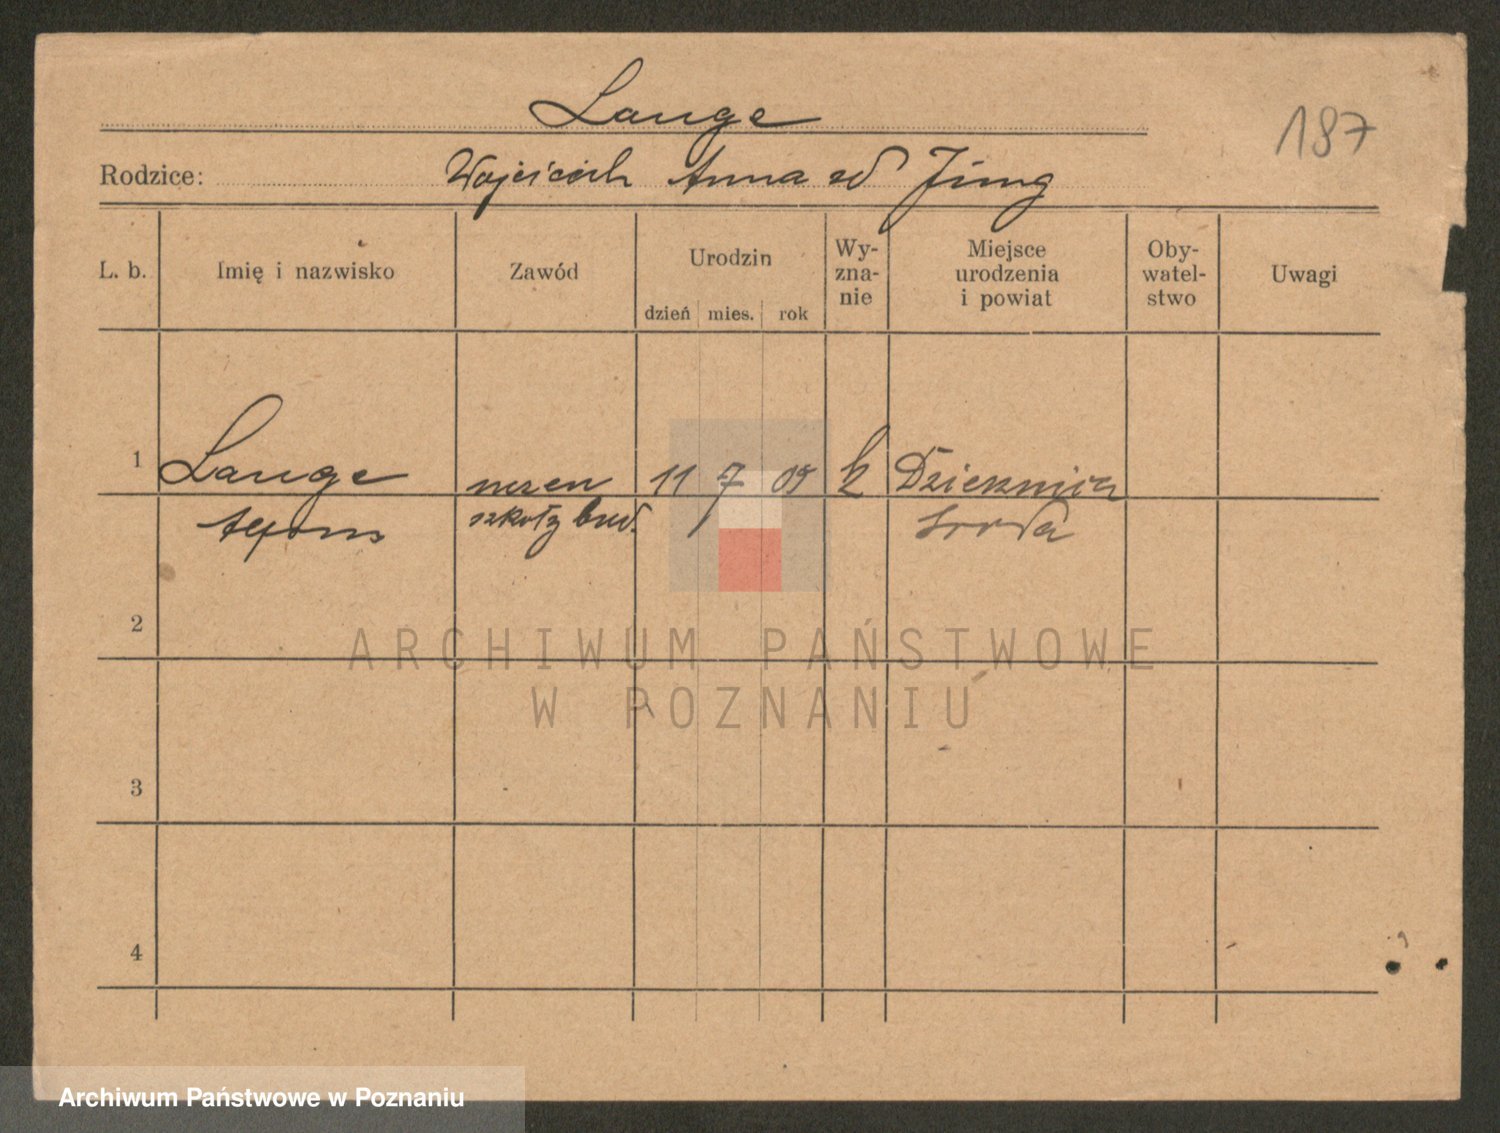 Lange
187
Rodzice: Wojciech Anna zd Jung
L. b.
Imię i nazwisko
Zawód
Urodzin
dzień mies. rok
Wy-
zna-
nie
Miejsce
urodzenia
i powiat
Oby-
watel-
stwo
Uwagi
1 Lange uczeń 11 7 09 k
Alfons szkoły bud. Środa
2
3
4
ARCHIWUM PAŃSTWOWE
W POZNANIU
Archiwum Państwowe w Poznaniu